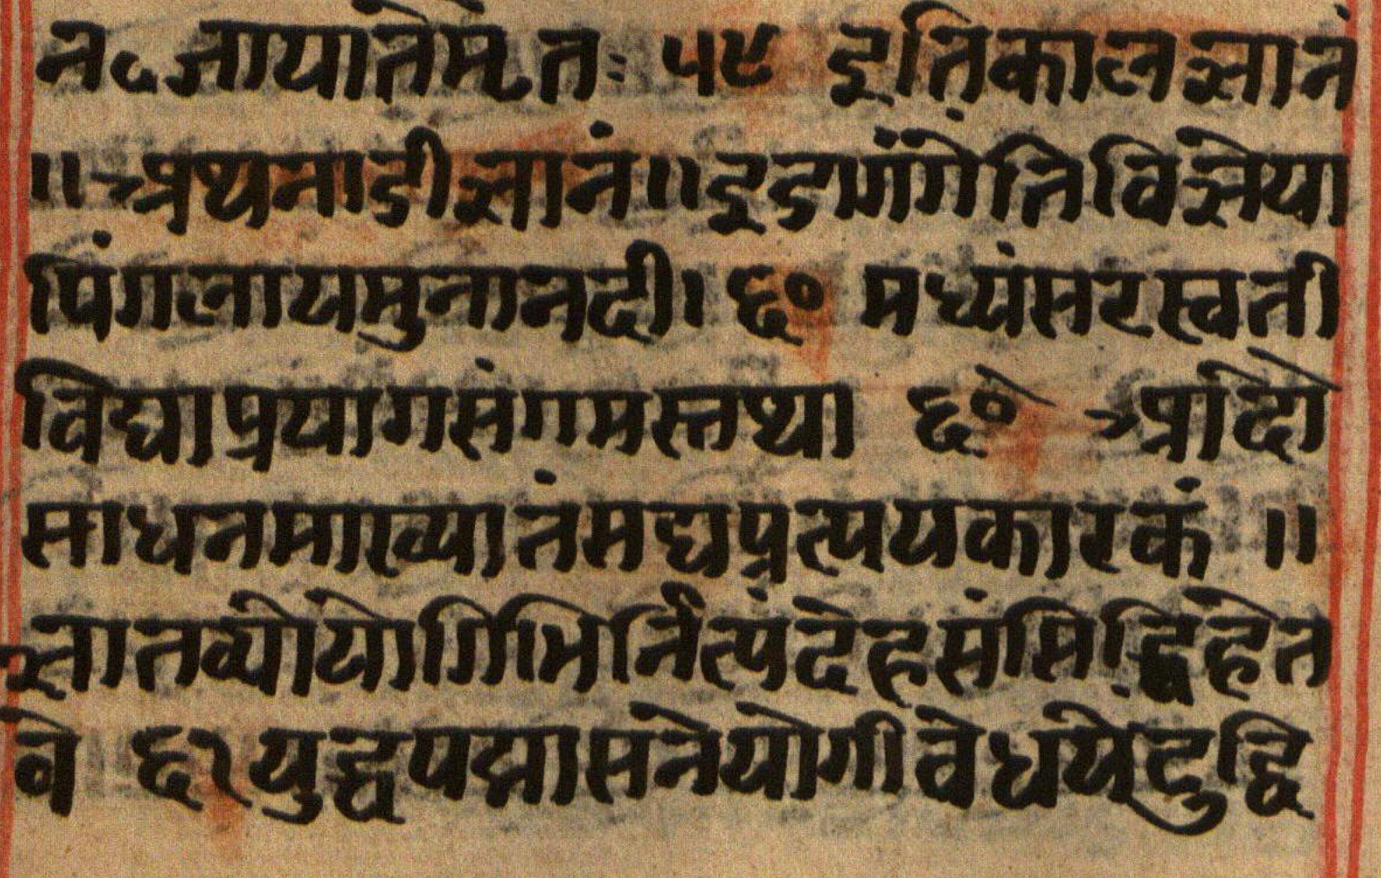 न॰जायातेमृतः ५९ इतिकालज्ञानं
॥ अथनाडीज्ञानं॥इडागंगेतिविज्ञेया
पिंगलायमुनानदी। ६० मध्यंसरस्वती
विद्याप्रयागसंगमस्तथा ६० आदौ
साधनमाख्यातंमद्यप्रत्ययकारकं ॥
ज्ञातव्योयोगिभिर्नित्यंदेहसंसिद्धिहेत
वे ६१ युद्धपद्मासनेयोगी